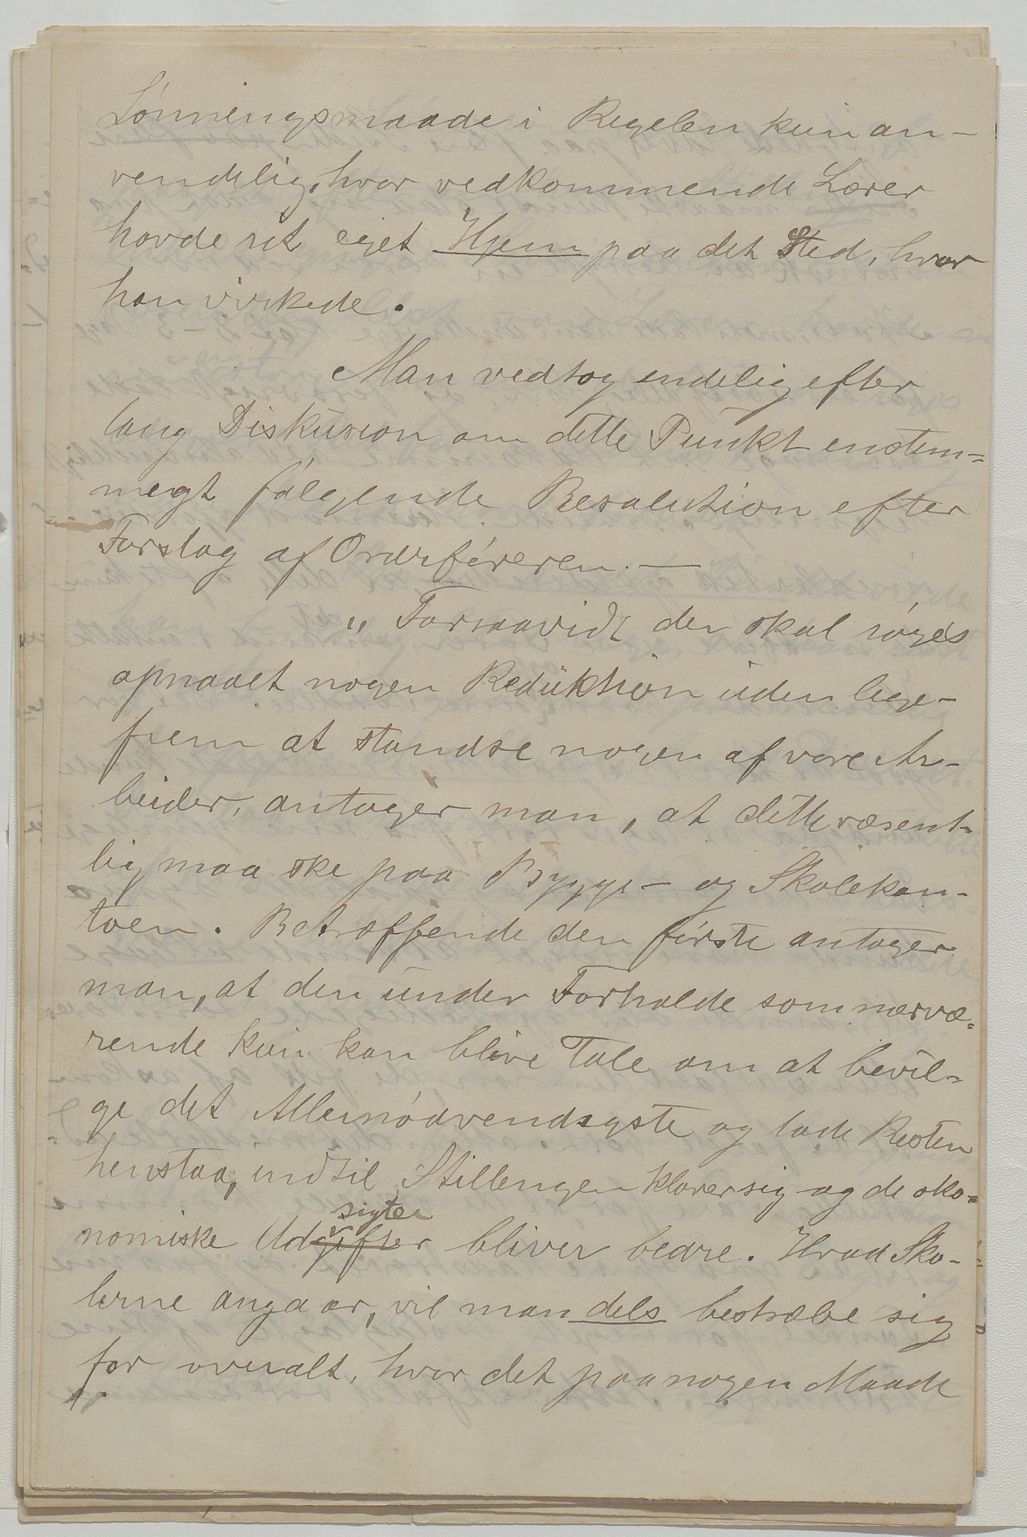 Lønningsmaade i Regelen kun an-
vendelig, hvor vedkommende Lærer
havde sit eget Hjem paa det Sted, hvor
han virkede.
Man vedtog endelig efter
lang Diskusion om dette Punkt enstem=
megt følgende Resolution efter
Forslag af Ordføreren. —
„ Forsaavidt der skal søges
opnaaet nogen Reduktion uden lige-
frem at standse nogen af vore Ar-
beider, antager man, at dette væsent-
lig maa ske paa Bygge- og Skolekon-
toen. Betræffende den første antager
man, at der under Forholde som nærvæ=
rende kun kan blive Tale om at bevil-
ge det Allernødvendigste og lade Resten
henstaa, indtil Stillingen klarer sig og de øko=
sigter
nomiske Udgifter bliver bedre. Hvad Sko-
lerne angaar, vil man dels bestræbe sig
for overalt, hvor det paa nogen Maade